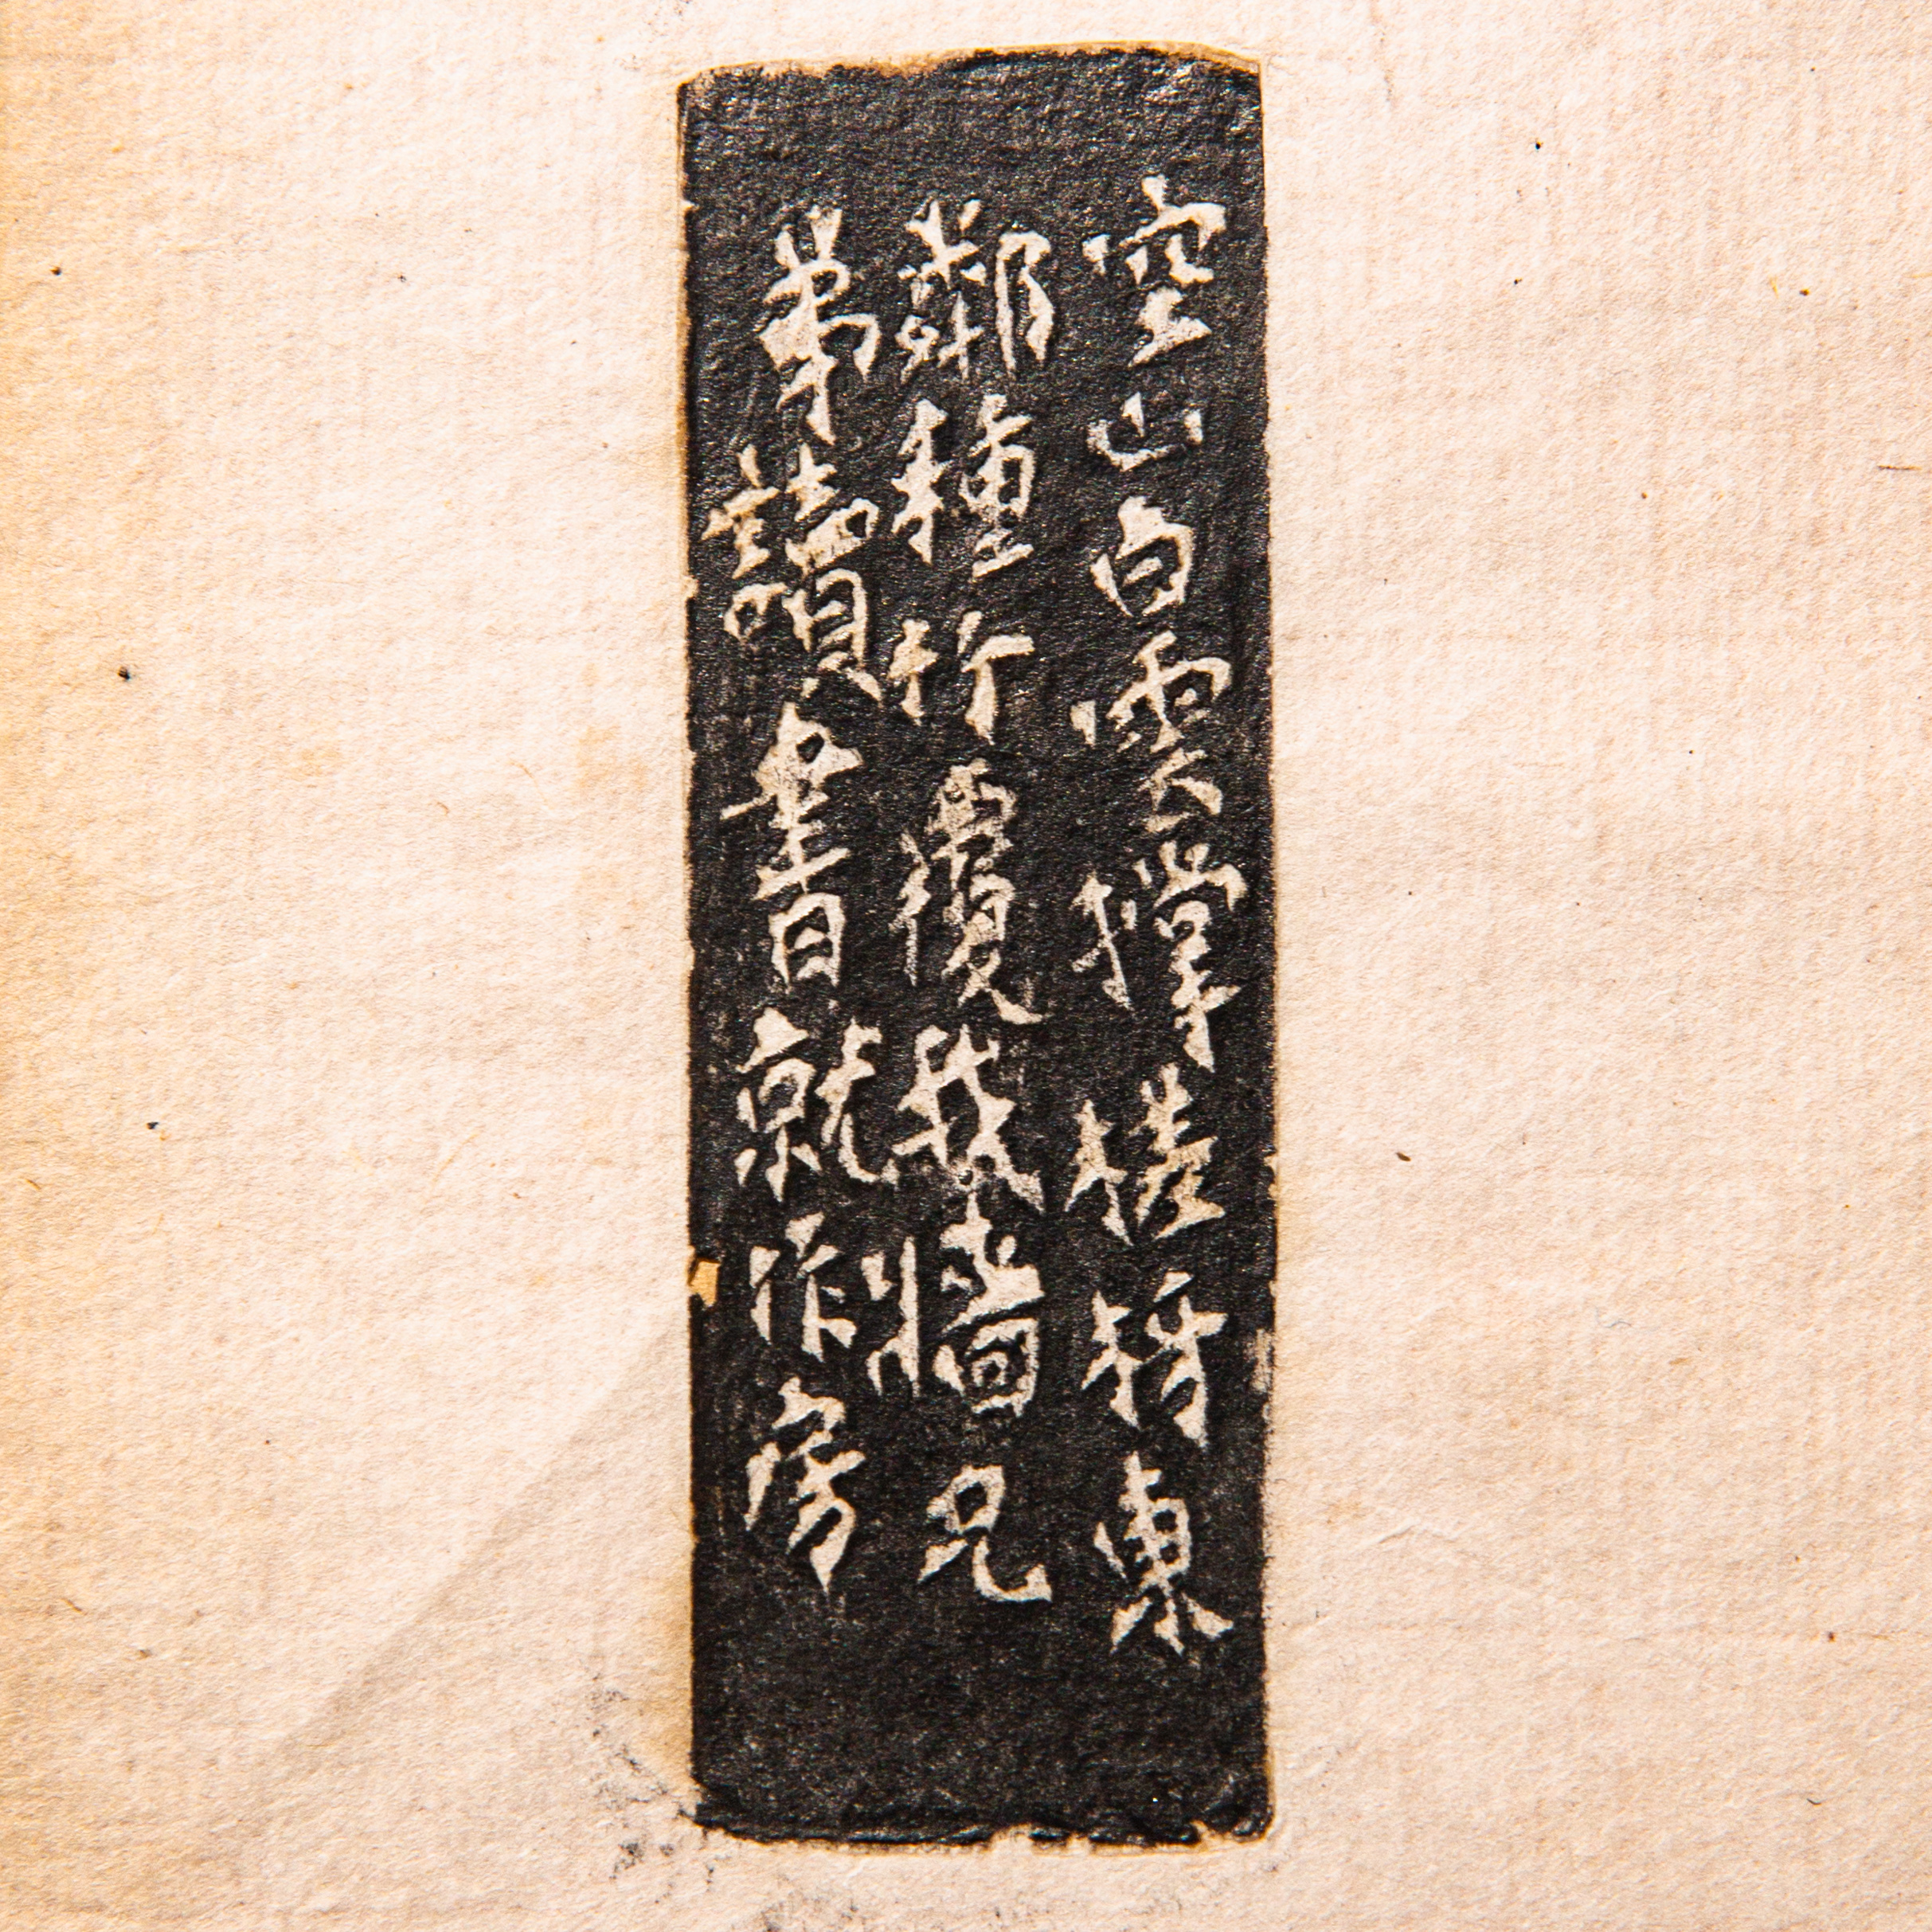 空山白雲撑楼東
鄰種竹覆我牆兄
弟讀書就作房